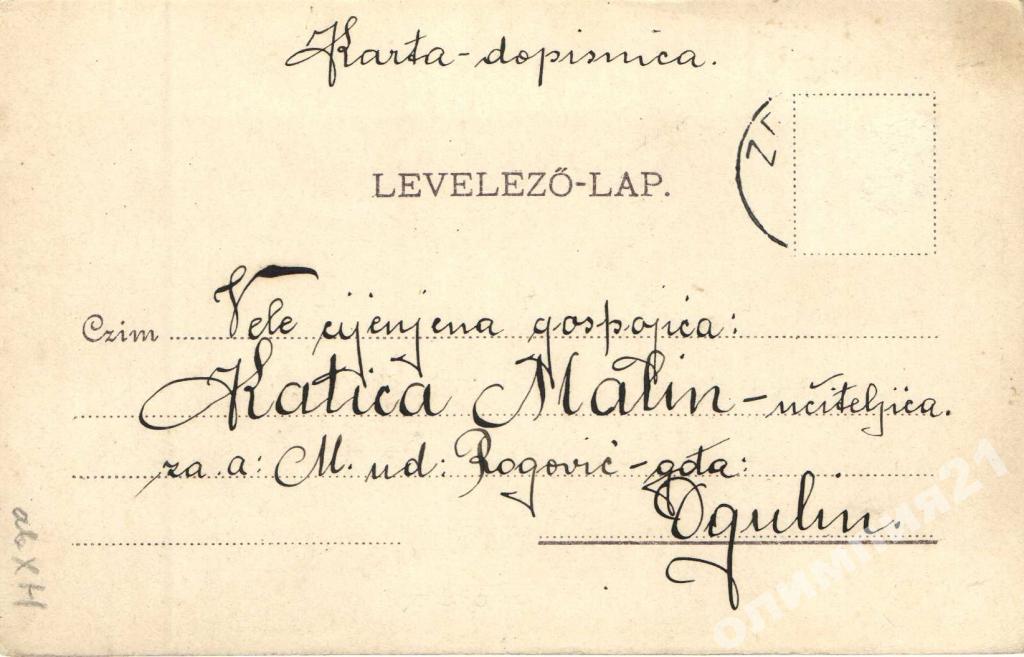 Karta-dopisnica.
LEVELEZŐ-LAP.
Czim Vele cijenjena gospojica:
Katica Malin-učiteljica.
za. a: M. ud: Rogović-gđa:
Ogulin.
олимпия21